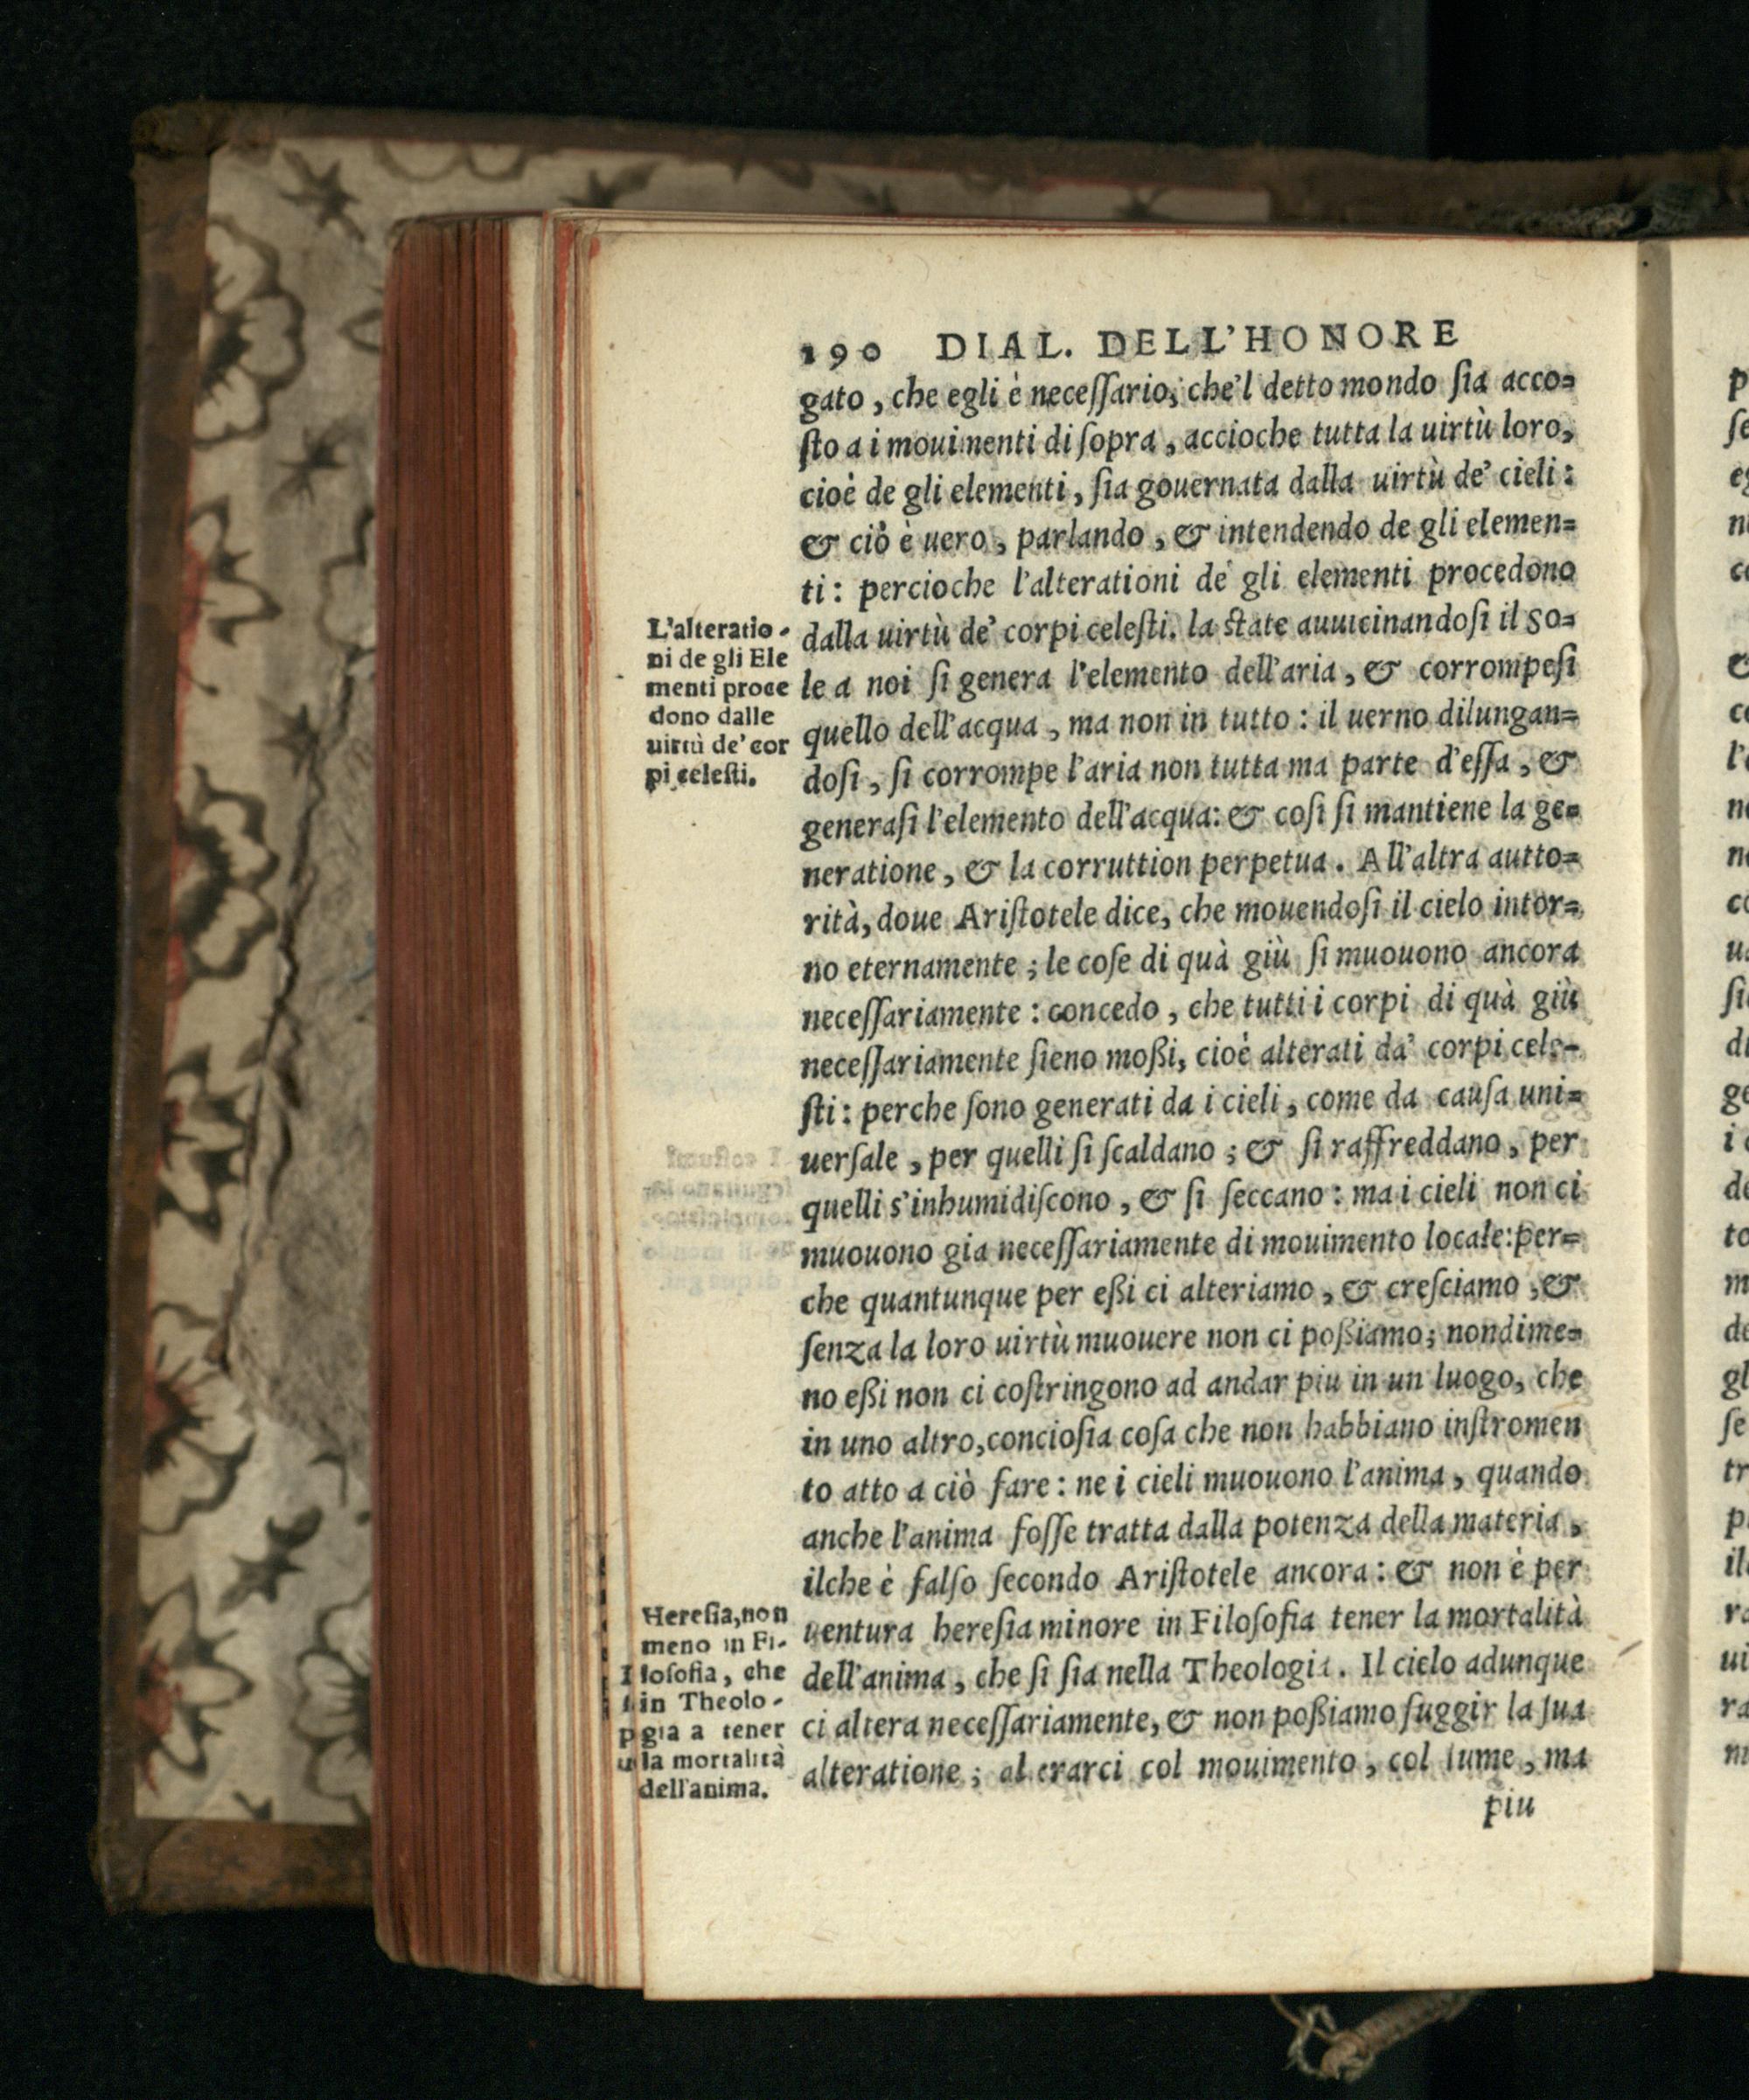 190 DIAL. DELL'HONORE
gato, che egli è neceſſario, che'l detto mondo ſia acco=
ſto a i mouimenti di ſopra, accioche tutta la uirtù loro,
cioè de gli elementi, ſia gouernata dalla uirtù de' cieli:
& ciò è uero, parlando, & intendendo de gli elemen=
ti: percioche l'alterationi de gli elementi procedono
dalla uirtù de' corpi celeſti. la ſtate auuicinandoſi il So=
le a noi ſi genera l'elemento dell'aria, & corrompeſi
quello dell'acqua, ma non in tutto: il uerno dilungan=
doſi, ſi corrompe l'aria non tutta ma parte d'eſſa, &
generaſi l'elemento dell'acqua: & coſi ſi mantiene la ge=
neratione, & la corruttion perpetua. All'altra autto=
rità, doue Ariſtotele dice, che mouendoſi il cielo intor=
no eternamente; le coſe di quà giù ſi muouono ancora
neceſſariamente: concedo, che tutti i corpi di quà giù
neceſſariamente ſieno moßi, cioè alterati da' corpi cele-
ſti: perche ſono generati da i cieli, come da cauſa uni=
uerſale, per quelli ſi ſcaldano; & ſi raffreddano, per
quelli s'inhumidiſcono, & ſi ſeccano: ma i cieli non ci
muouono gia neceſſariamente di mouimento locale: per=
che quantunque per eßi ci alteriamo, & creſciamo, &
ſenza la loro uirtù muouere non ci poßiamo; nondime=
no eßi non ci coſtringono ad andar piu in un luogo, che
in uno altro, concioſia coſa che non habbiano inſtromen
to atto a ciò fare: ne i cieli muouono l'anima, quando
anche l'anima foſſe tratta dalla potenza della materia,
ilche è falſo ſecondo Ariſtotele ancora: & non è per
uentura hereſia minore in Filoſofia tener la mortalità
dell'anima, che ſi ſia nella Theologia. Il cielo adunque
ci altera neceſſariamente, & non poßiamo fuggir la ſua
alteratione; alterarci col mouimento, col lume, ma
piu
L'alteratio-
ni de gli Ele
menti proce
dono dalle
uirtù de' cor
pi celeſti.
Hereſia, non
meno in Fi-
loſofia, che
in Theolo-
gia a tener
la mortalità
dell'anima.